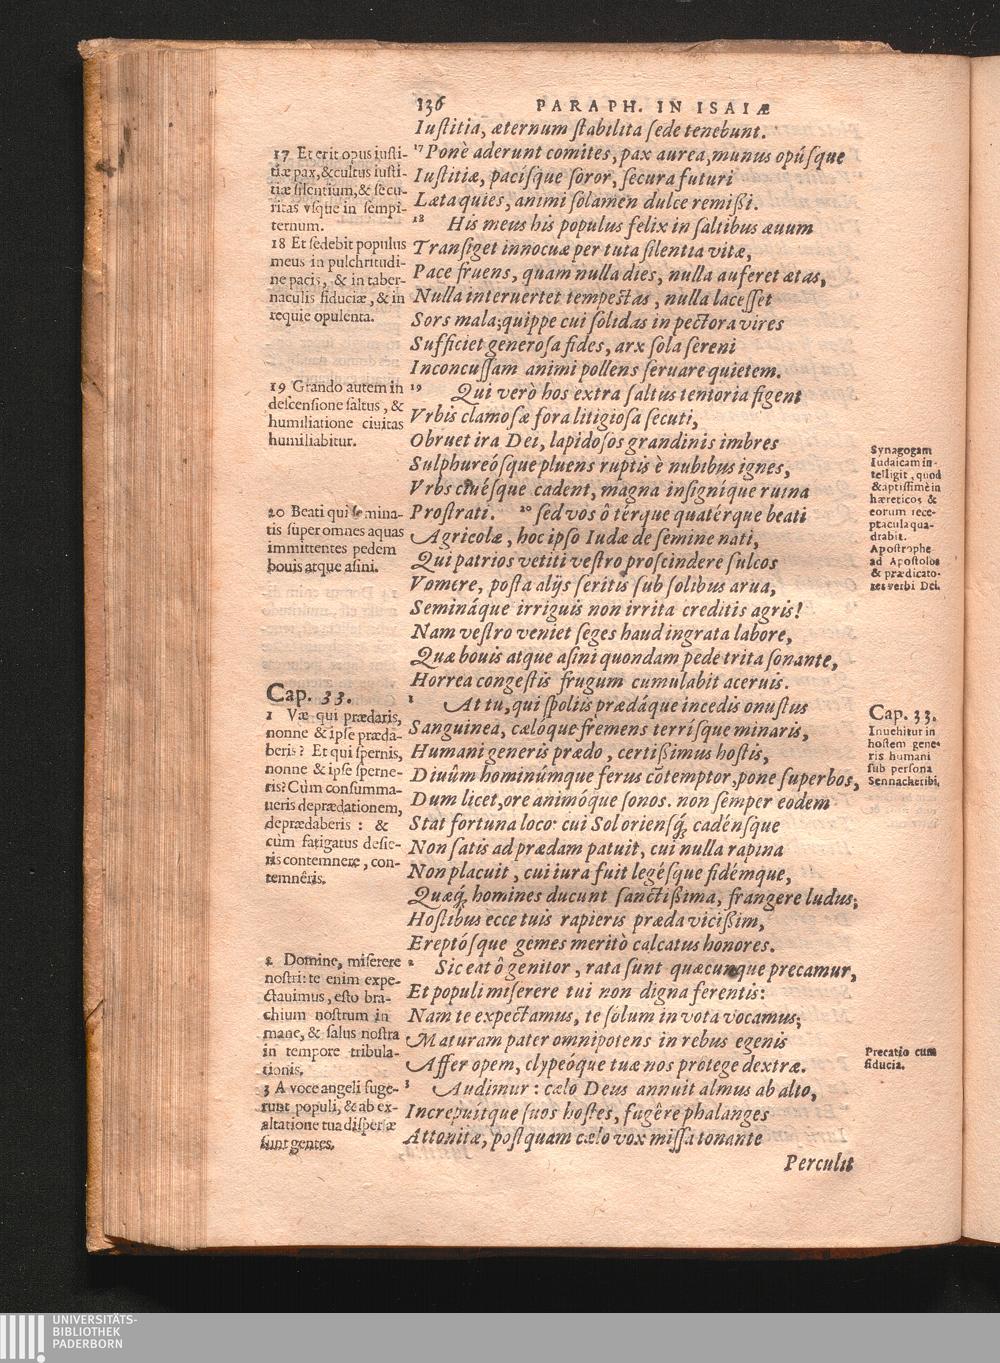 136 PARAPH. IN ISAIÆ
Iuſtitia, æternum ſtabilita ſede tenebunt.
¹⁷ Ponè aderunt comites, pax aurea, munus opúſque
Iuſtitiæ, pacíſque ſoror, ſecura futuri
Læta quies, animi ſolamen dulce remißi.
¹⁸ His meus his populus felix in ſaltibus æuum
Tranſiget innocuæ per tuta ſilentia vitæ,
Pace fruens, quam nulla dies, nulla auferet ætas,
Nulla interuertet tempeſtas, nulla laceſſet
Sors mala; quippe cui ſolidas in pectora vires
Sufficiet generoſa fides, arx ſola ſereni
Inconcuſſam animi pollens ſeruare quietem.
¹⁹ Qui verò hos extra ſaltus tentoria figent
Vrbis clamoſæ fora litigioſa ſecuti,
Obruet ira Dei, lapidoſos grandinis imbres
Sulphureóſque pluens ruptis è nubibus ignes,
Vrbs ciuéſque cadent, magna inſigníque ruina
Proſtrati. ²⁰ ſed vos ô térque quatérque beati
Agricolæ, hoc ipſo Iudæ de ſemine nati,
Qui patrios vetiti veſtro proſcindere ſulcos
Vomere, poſta alijs ſeritis ſub ſolibus arua,
Semináque irriguis non irrita creditis agris!
Nam veſtro veniet ſeges haud ingrata labore,
Quæ bouis atque aſini quondam pede trita ſonante,
Horrea congeſtis frugum cumulabit aceruis.
¹ At tu, qui ſpoliis prædáque incedis onuſtus
Sanguinea, cælóque fremens terríſque minaris,
Humani generis prædo, certißimus hoſtis,
Diuûm hominúmque ferus cōtemptor, pone ſuperbos,
Dum licet, ore animóque ſonos. non ſemper eodem
Stat fortuna loco: cui Sol orienſq́; cadénſque
Non ſatis ad prædam patuit, cui nulla rapina
Non placuit, cui iura fuit legéſque fidémque,
Quæq́; homines ducunt ſanctißima, frangere ludus;
Hoſtibus ecce tuis rapieris præda vicißim,
Ereptóſque gemes meritò calcatus honores.
² Sic eat ô genitor, rata ſunt quæcunque precamur,
Et populi miſerere tui non digna ferentis:
Nam te expectamus, te ſolum in vota vocamus;
Maturam pater omnipotens in rebus egenis
Affer opem, clypeóque tuæ nos protege dextræ.
³ Audimur: cælo Deus annuit almus ab alto,
Increpuítque ſuos hoſtes, fugêre phalanges
Attonitæ, poſtquam cælo vox miſſa tonante
Perculit
17 Et erit opus iuſti-
tiæ pax, & cultus iuſti-
tiæ ſilentium, & ſecu-
ritas vſque in ſempi-
ternum.
18 Et ſedebit populus
meus in pulchritudi-
ne pacis, & in taber-
naculis fiduciæ, & in
requie opulenta.
19 Grando autem in
deſcenſione ſaltus, &
humiliatione ciuitas
humiliabitur.
20 Beati qui ſemina-
tis ſuper omnes aquas
immittentes pedem
bouis atque aſini.
Cap. 33.
1 Væ qui prædaris,
nonne & ipſe præda-
beris? Et qui ſpernis,
nonne & ipſe ſperne-
ris? Cùm conſumma-
ueris deprædationem,
deprædaberis: &
cùm fatigatus deſie-
ris contemnere, con-
temnêris.
2 Domine, miſerere
noſtri: te enim expe-
ctauimus, eſto bra-
chium noſtrum in
mane, & ſalus noſtra
in tempore tribula-
tionis.
3 A voce angeli fuge-
runt populi, & ab ex-
altatione tua diſperſæ
ſunt gentes.
Synagogam
Iudaicam in-
telligit, quod
& aptiſſimè in
hæreticos &
eorum rece-
ptacula qua-
drabit.
Apoſtrophe
ad Apoſtolos
& prædicato-
res verbi Dei.
Cap. 33.
Inuehitur in
hoſtem gene-
ris humani
ſub perſona
Sennacheribi.
Precatio cum
fiducia.
UNIVERSITÄTS-
BIBLIOTHEK
PADERBORN